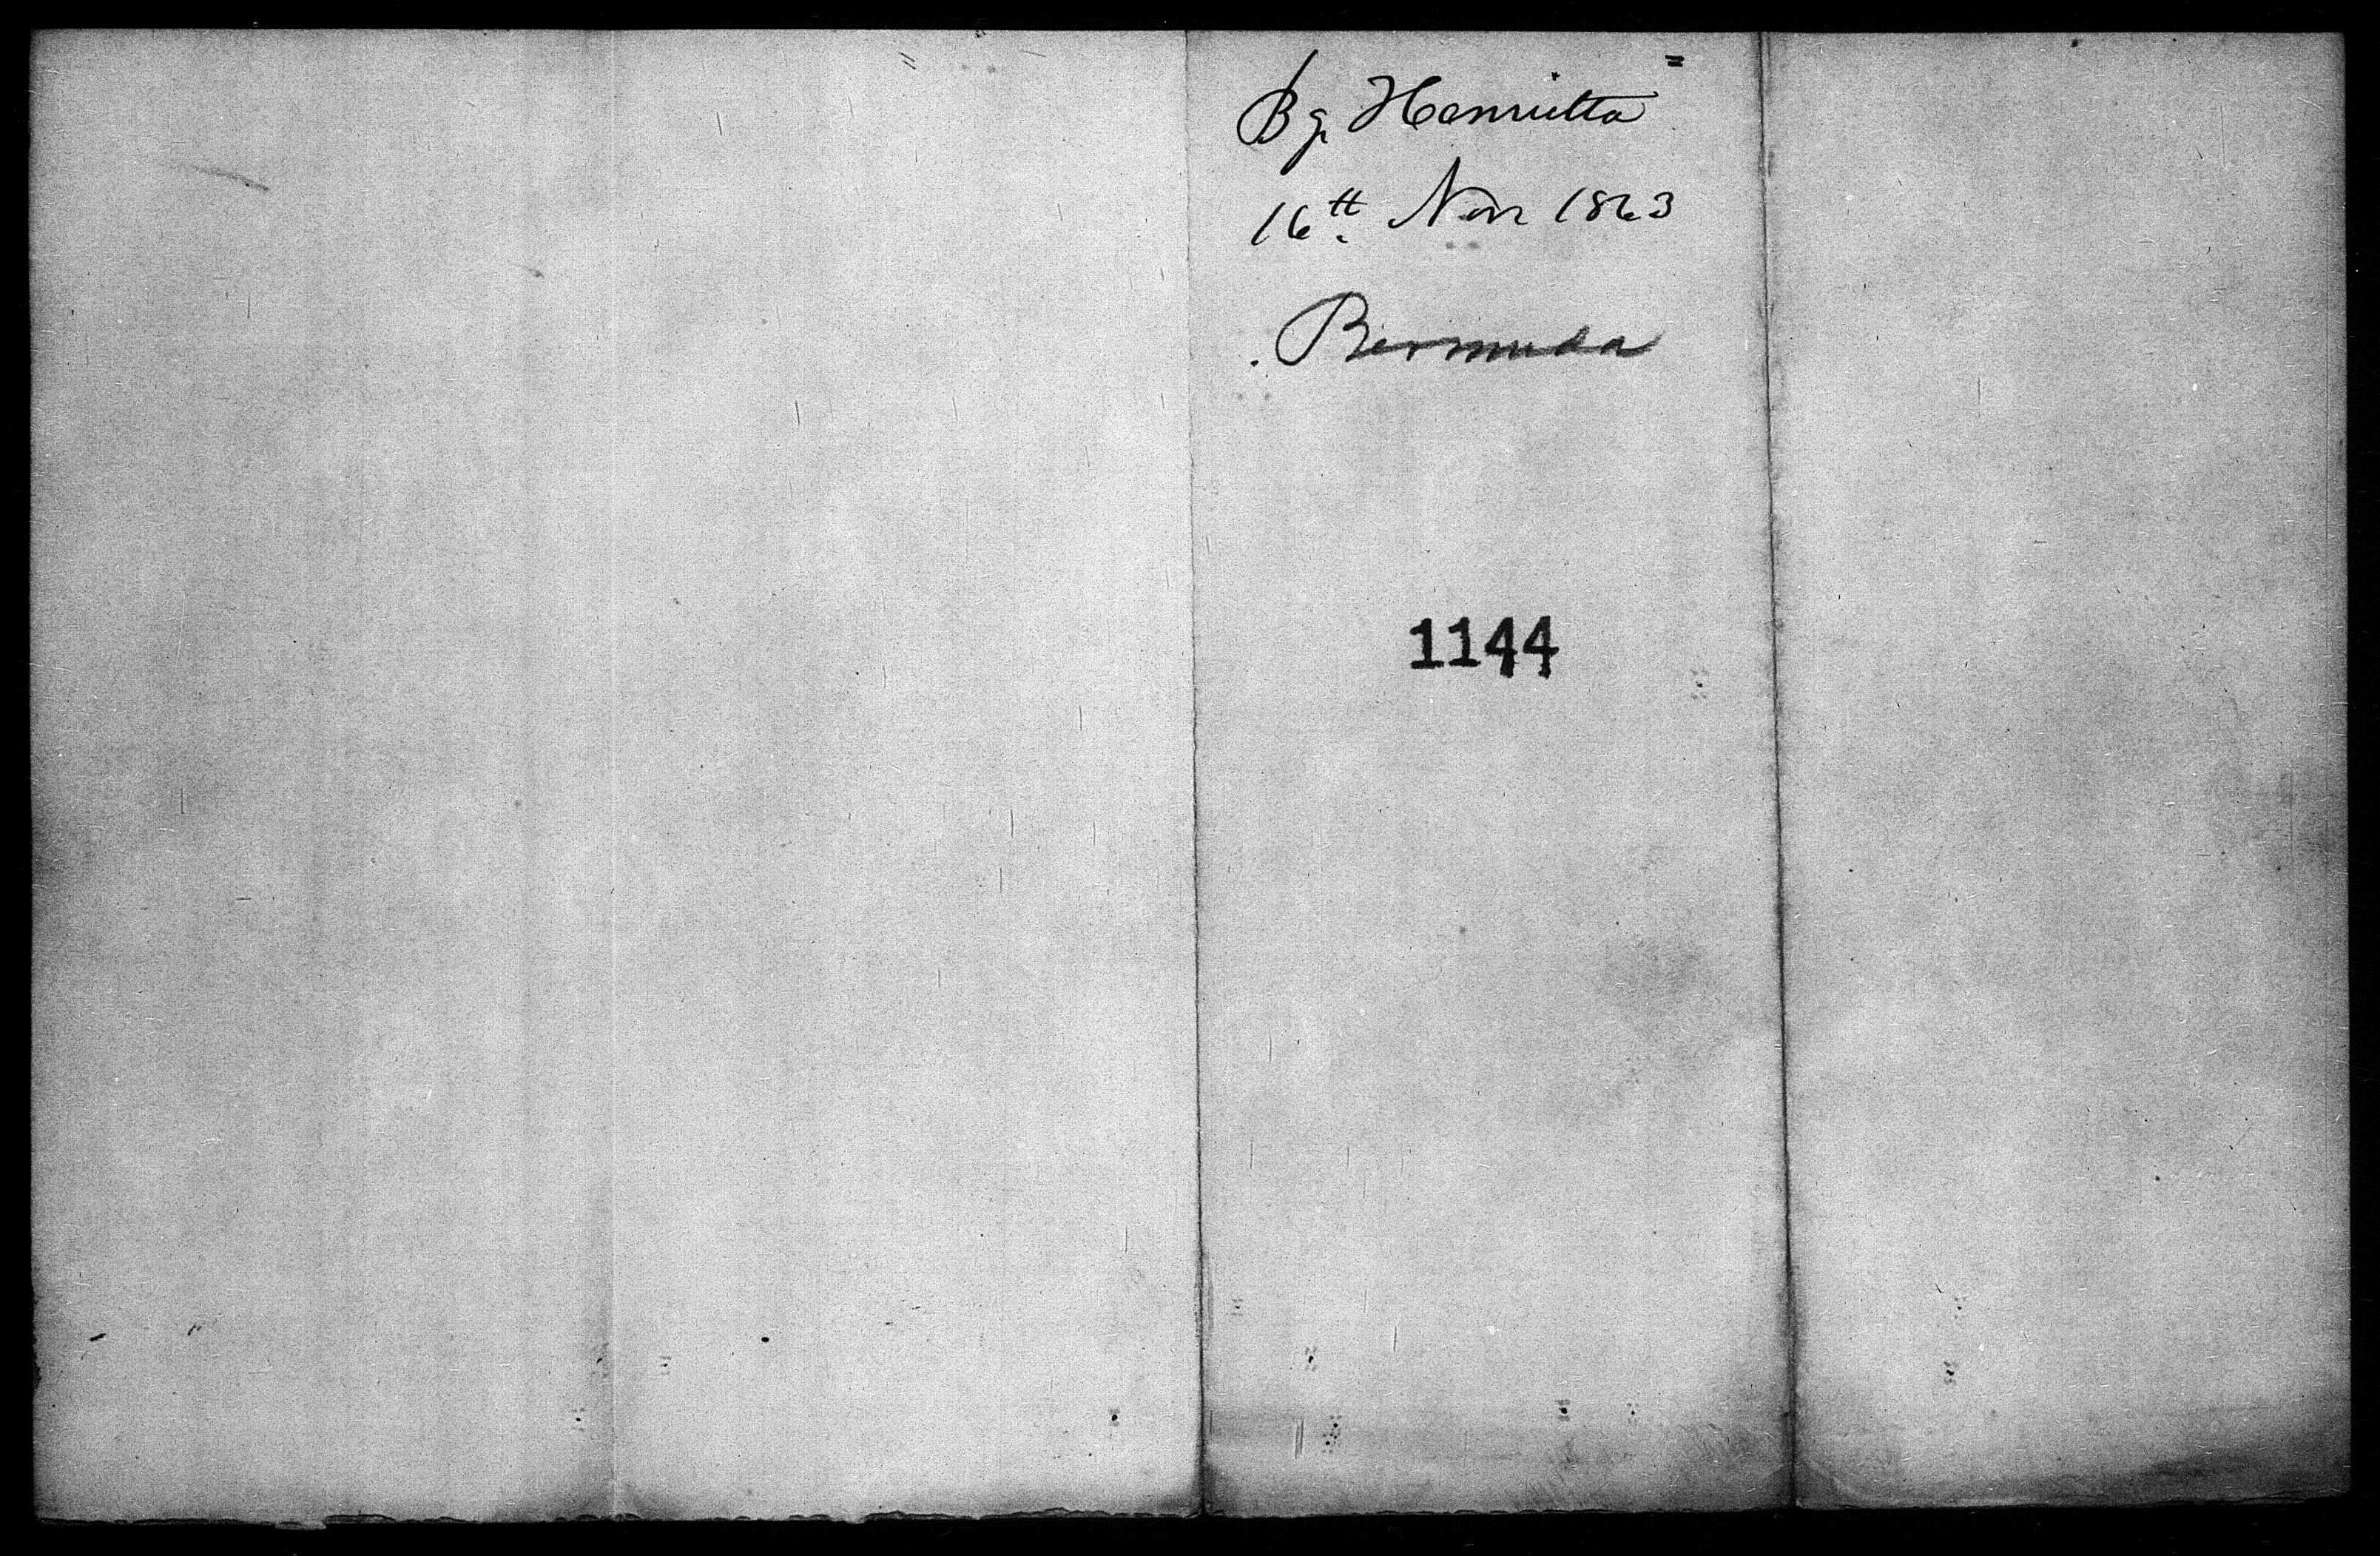 Bg. Henrietta
16th. Nov 1863
Bermuda
1144